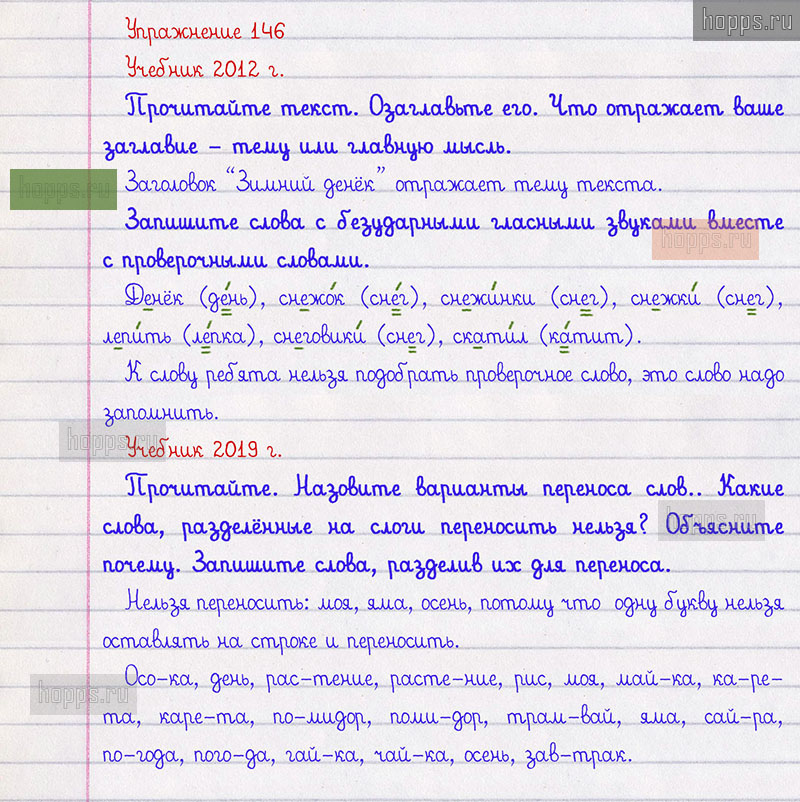 hopps.ru
Упражнение 146
Учебник 2012 г.
Прочитайте текст. Озаглавьте его. Что отражает ваше
заглавие – тему или главную мысль.
hopps.ru
Заголовок “Зимний денёк” отражает тему текста.
Запишите слова с безударными гласными звуками вместе
hopps.ru
с проверочными словами.
Денёк (де́нь), снежо́к (сне́г), снежи́нки (снег), снежки́ (снег),
лепи́ть (ле́пка), снеговики́ (снег), скати́л (ка́тит).
К слову ребята нельзя подобрать проверочное слово, это слово надо
запомнить.
hopps.ru
Учебник 2019 г.
Прочитайте. Назовите варианты переноса слов.. Какие
hopps.ru
слова, разделённые на слоги переносить нельзя? Объясните
почему. Запишите слова, разделив их для переноса.
Нельзя переносить: моя, яма, осень, потому что одну букву нельзя
оставлять на строке и переносить.
Осо-ка, день, рас-тение, расте-ние, рис, моя, май-ка, ка-ре-
hopps.ru
та, каре-та, по-мидор, поми-дор, трам-вай, яма, сай-ра,
по-года, пого-да, гай-ка, чай-ка, осень, зав-трак.